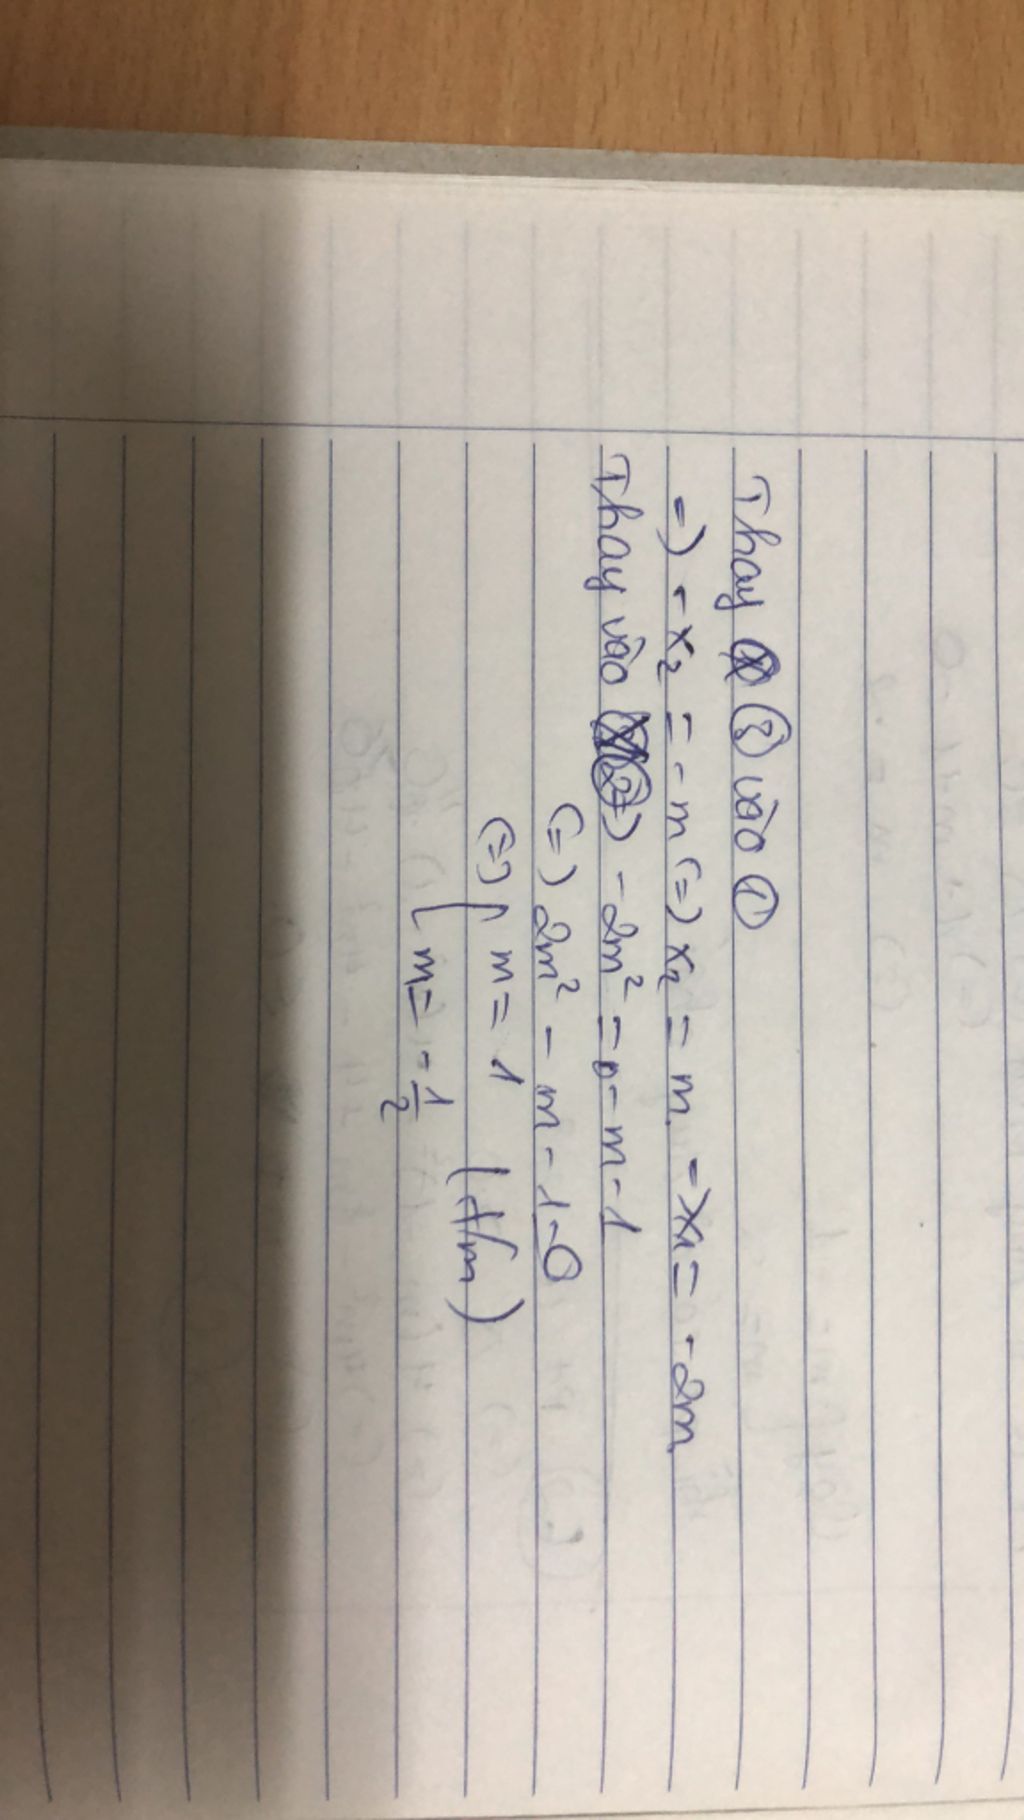 Thay ③ vào ①
=) -x₂ = -m (=) x₂ = m => x₁ = -2m
Thay vào ②) -2m² = -m-1
(=) 2m² - m - 1 = 0
(=) [ m = 1
[ m = -1/2 (t/m)